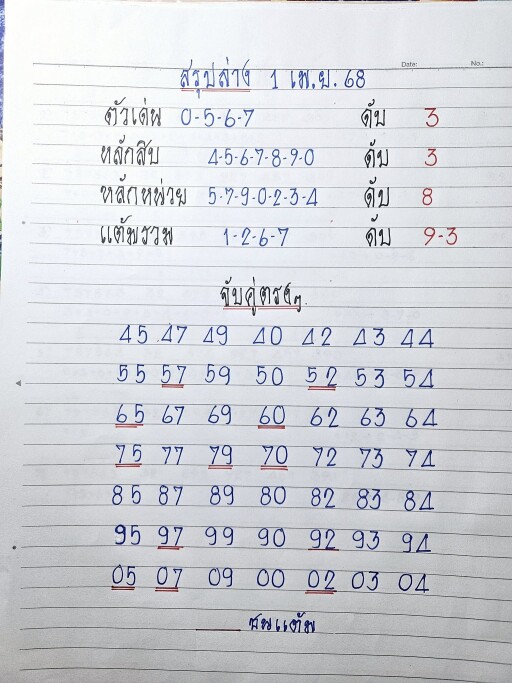 Date: No.:
สรุปล่าง 1 เม.ย. 68
ตัวเด่น 0-5-6-7 ดับ 3
หลักสิบ 4-5-6-7-8-9-0 ดับ 3
หลักหน่วย 5-7-9-0-2-3-4 ดับ 8
แต้มรวม 1-2-6-7 ดับ 9-3
จับคู่ตรงๆ
45 47 49 40 42 43 44
55 57 59 50 52 53 54
65 67 69 60 62 63 64
75 77 79 70 72 73 74
85 87 89 80 82 83 84
95 97 99 90 92 93 94
05 07 09 00 02 03 04
ชนแต้ม